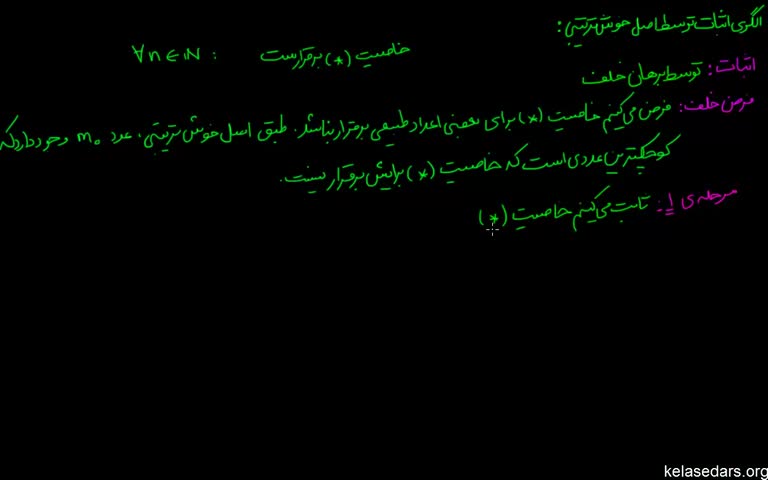 الگوی اثبات توسط اصل خوش ترتیبی:
∀n∈ℕ : خاصیت (*) برقرار است
اثبات: توسط برهان خلف
فرض خلف: فرض می کنیم خاصیت (*) برای بعضی اعداد طبیعی برقرار نباشد. طبق اصل خوش ترتیبی، عدد m₀ وجود دارد که
کوچکترین عددی است که خاصیت (*) برایش برقرار نیست.
مرحله ی 1: ثابت می کنیم خاصیت (*)
kelasedars.org